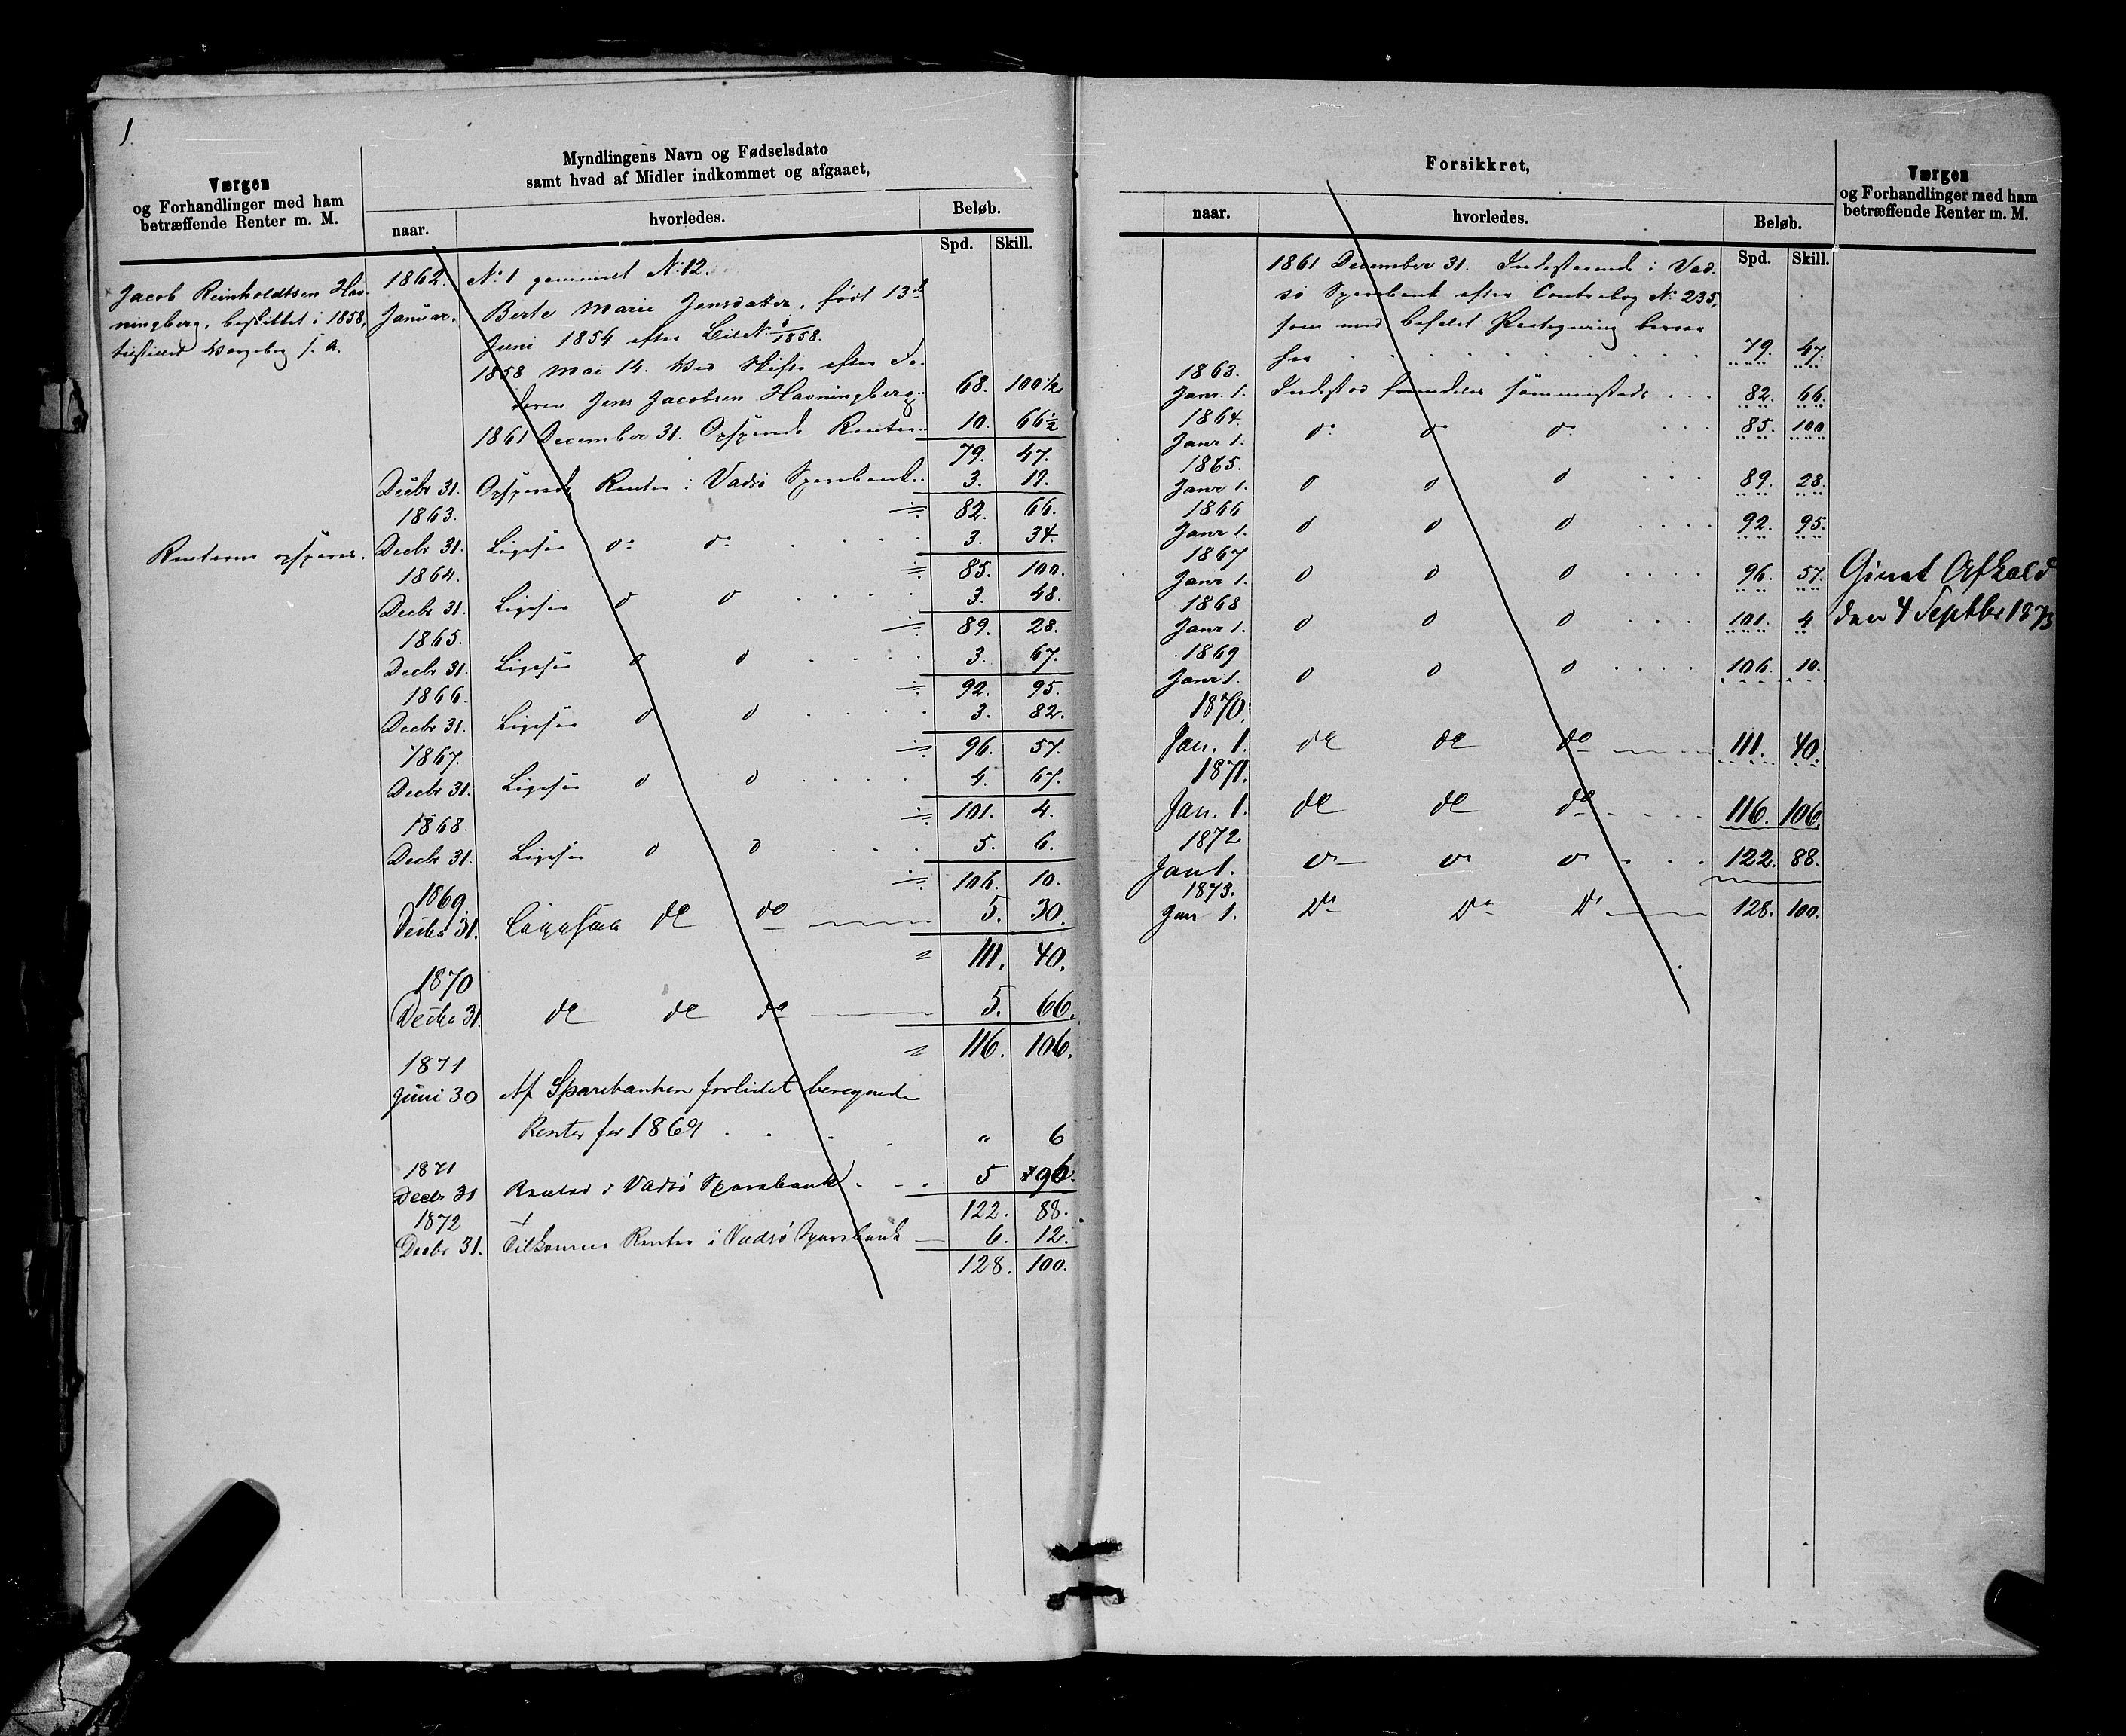 1.
Værgen
og Forhandlinger med ham
betræffende Renter m. M.
Myndlingens Navn og Fødselsdato
samt hvad af Midler indkommet og afgaaet,
naar.
hvorledes.
Beløb.
Spd. Skill.
Jacob Reinholdtsen Hav-
ningberg, beskikket i 1858,
tilstillet Værgebog s. A.
Renterne opspares.
1862. No 1 gammelt No 12.
Januar. Berte Marie Jensdatter, født 13de
Juni 1854 efter
1858 Mai 14. Ved Skifte efter Fa-
deren Jens Jacobsen Havningberg.. 68. 100½
1861 December 31. Opsparede Renter.. 10. 66½
79. 47.
Decbr 31. Opsparede Renter i Vadsö Sparebank.. 3. 19.
1863. 82. 66.
Decbr 31. Ligesaa do do . . . . 3. 34.
1864. 85. 100.
Decbr 31. Ligesaa do do . . . . 3. 48.
1865. 89. 28.
Decbr 31. Ligesaa do do . . . . 3. 67.
1866. 92. 95.
Decbr 31. Ligesaa do do . . . . 3. 82.
1867. 96. 57.
Decbr 31. Ligesaa do do . . . . 4. 67.
1868. 101. 4.
Decbr 31. Ligesaa do do . . . . 5. 6.
1869 106. 10.
Decbr 31. Ligesaa do do 5. 30.
111. 40.
1870
Decbr 31. do do do 5. 66.
116. 106.
1871
Juni 30 Af Sparebanken forlidet beregnede
Renter for 1869 . . . . " 6
1871
Decbr 31 Renter i Vadsö Sparebank . . . 5 96.
1872 122. 88.
Decbr 31. Tilkomne Renter i Vadsö Sparebank 6. 12.
128. 100.
Forsikkret,
naar.
hvorledes.
Beløb.
Spd. Skill.
Værgen
og Forhandlinger med ham
betræffende Renter m. M.
1861 December 31. Indestaaende i Vad-
sö Sparebank efter Contrabog No 235,
som med befalet Paategning beroer
her . . . . . . . . 79. 47.
1863.
Janr. 1. Indestod fremdeles sammesteds . . . 82. 66.
1864.
Janr 1. do do do . . . 85. 100
1865.
Janr 1. do do do . . . 89. 28.
1866
Janr 1. do do do . . . . 92. 95.
1867
Janr 1. do do do . . . . 96. 57.
1868
Janr 1. do do do . . . 101. 4
1869
Janr 1. do do do . . . . 106. 10.
1870.
Jan. 1. do do do 111. 40.
1871.
Jan. 1. do do do . . . . 116. 106.
1872
Jan 1. do do do . . . 122. 88.
1873.
Jan 1. Do Do Do 128. 100.
Givet Afkald
den 4 Septbr 1873